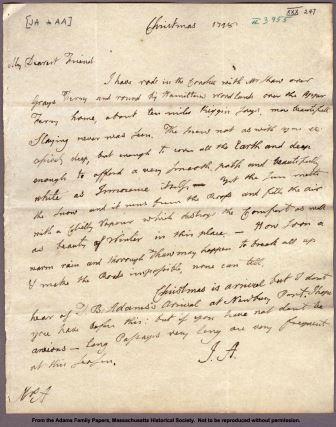 [JA to AA]
Christmas 1798.
II 3955
XXX 247
My Dearest Friend
I have rode in the Coachee with Mr Shaw over
Grays Ferry and round by Hamiltons woodlands over the upper
Ferry home, about ten miles more beautifull
Slaying never was seen. The snow not as with you
deep, but enough to cover all the Earth and deep
enough to afford a very smooth path and beautifully
white as Innocence itself,— Yet the Sun melts
the Snow and it runs from the Roofs and fills the air
with a chilly Vapour which destroys the Comfort as well
as beauty of Winter in this place.— How soon a
warm rain and thorough Thaw may happen to break all up
& make the Roads impassible, none can tell.
Christmas is arrived but I dont
hear of B. Adams's Arrival at Newbury Port. I hope
you have before this: but if you have not dont be
anxious— Long Passages very long are very frequent
at this season.
J. A.
Mrs A
From the Adams Family Papers, Massachusetts Historical Society. Not to be reproduced without permission.